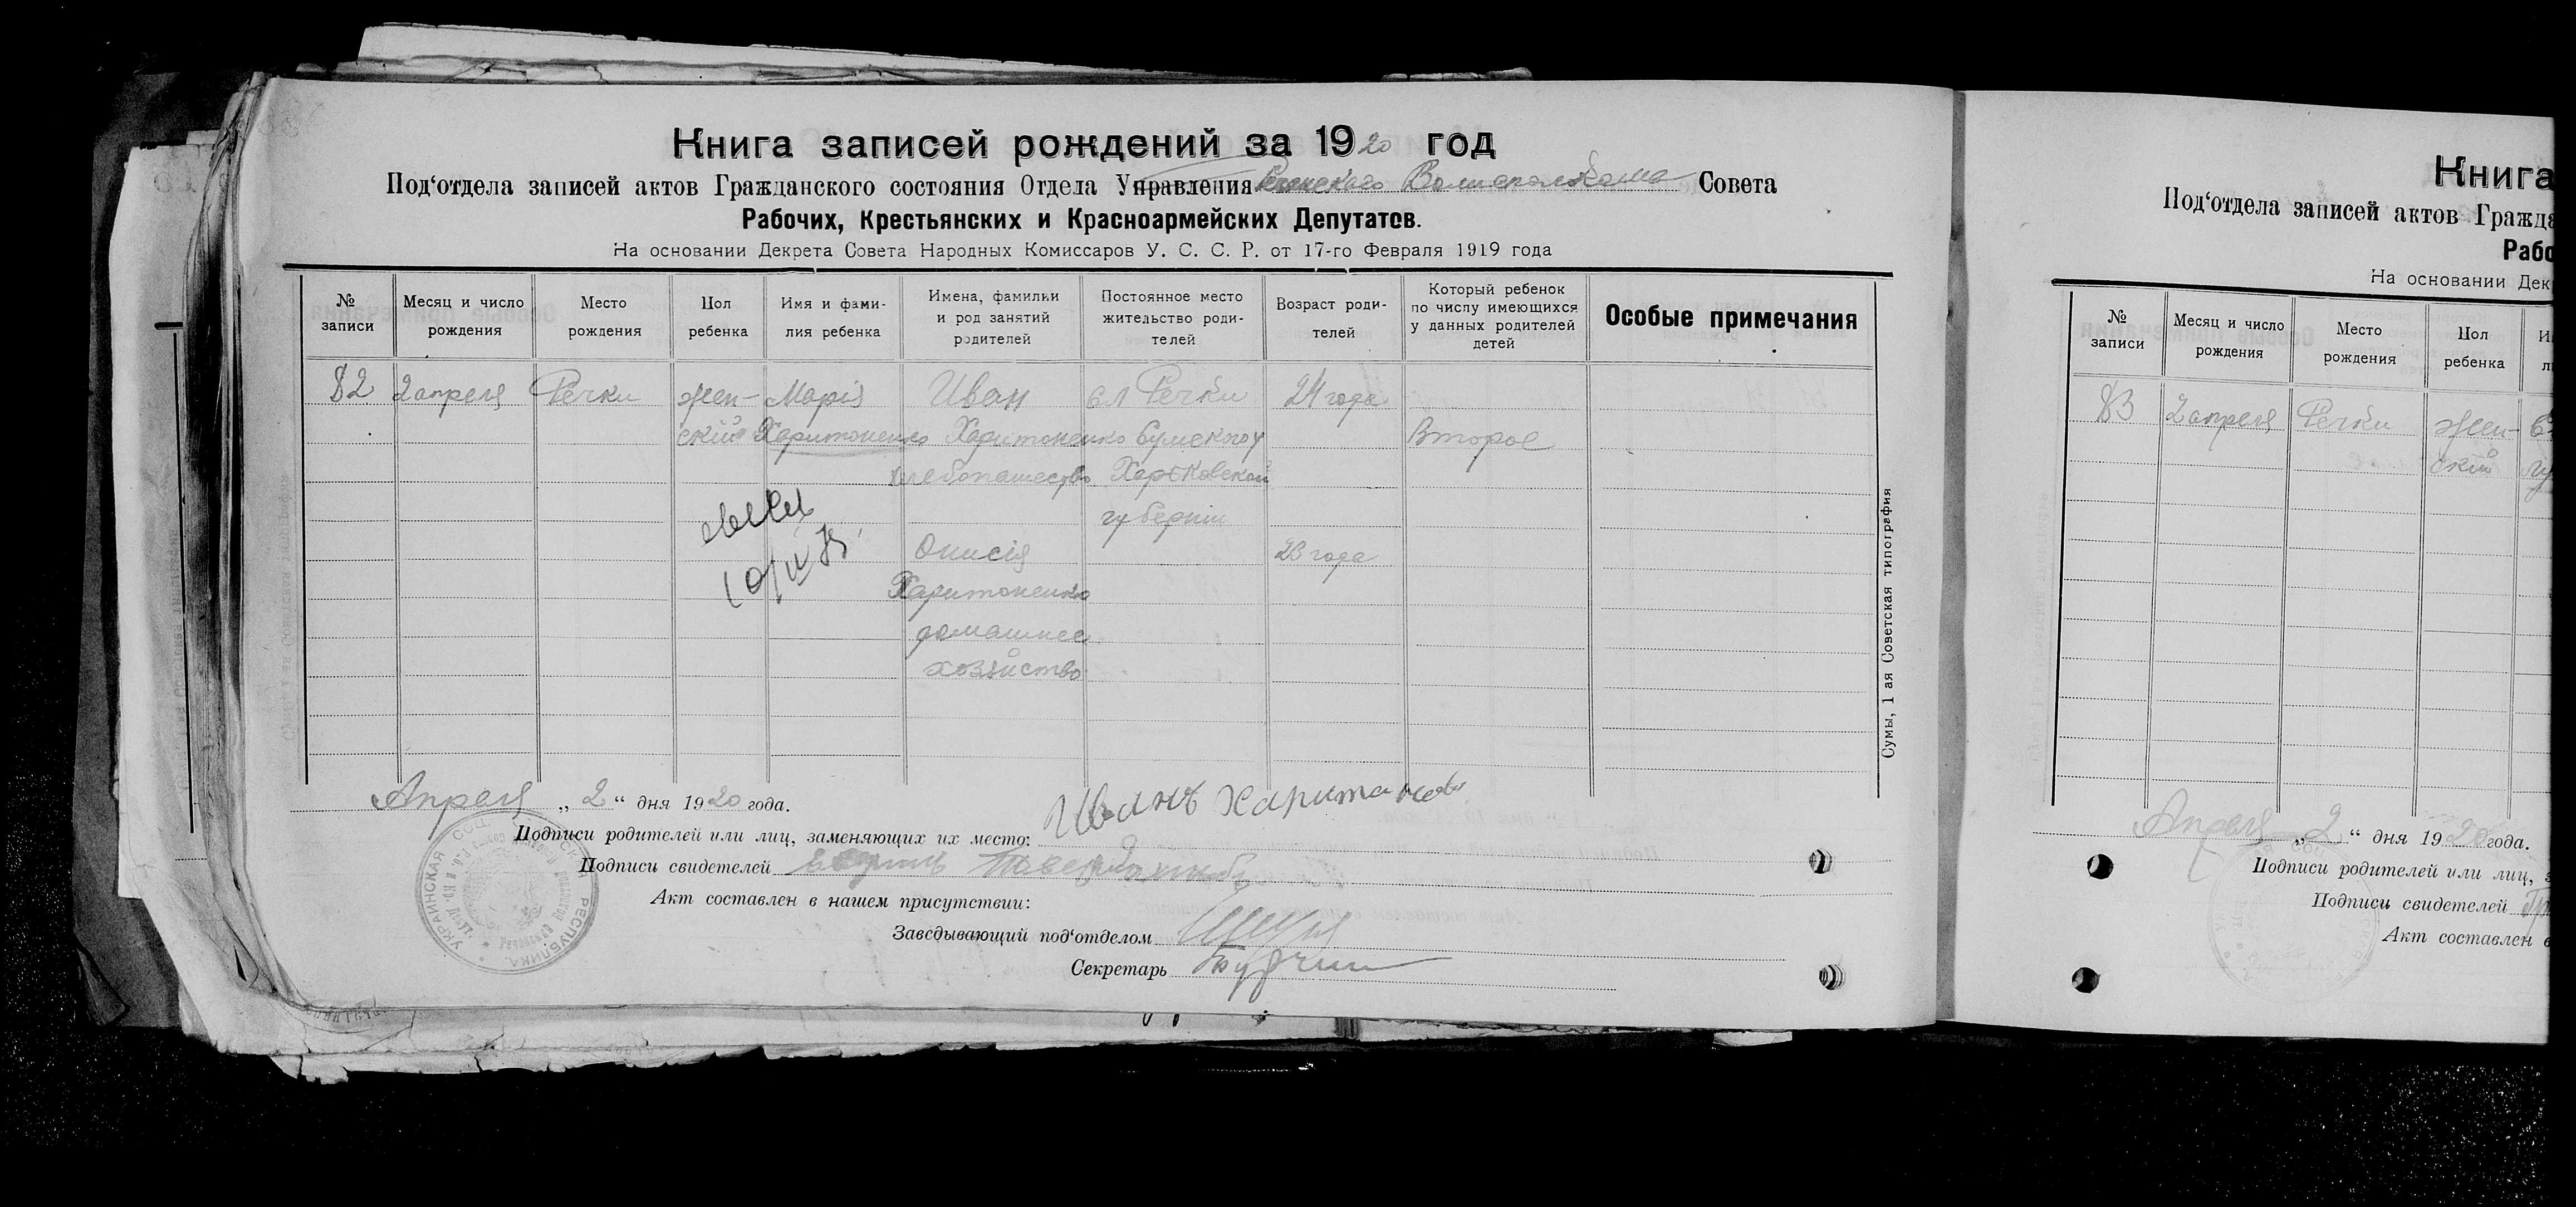 Книга записей рождений за 1920 год
Под‘отдела записей актов Гражданского состояния Отдела Управления Реченскаго Волисполкома Совета
Рабочих, Крестьянских и Красноармейских Депутатов.
На основании Декрета Совета Народных Комиссаров У. С. С. Р. от 17-го Февраля 1919 года
№ записи
Месяц и число рождения
Место рождения
Пол ребенка
Имя и фамилия ребенка
Имена, фамилки и род занятий родителей
Постоянное место жительство родителей
Возраст родителей
Который ребенок по числу имеющихся у данных родителей детей
Особые примечания
82 2 апреля Речки жен- Марія Иван сл Речки 24 года
скій Харитоненко Харитоненко Сумского у Второе
хлебопашество Харьковской
губерніи
10/IV
Онисія 23 года
Харитоненко
домашнее
хозяйство
Сумы, 1 ая Советская типография
Апреля „ 2 “ дня 1920 года.
Подписи родителей или лиц, заменяющих их место: Иванъ Харитонов
Подписи свидетелей
Акт составлен в нашем присутствии:
Заведывающий под‘отделом
Секретарь
УКРАИНСКАЯ СОЦ. РЕСПУБЛИКА
Книга
Под‘отдела записей актов Гражда
Рабо
На основании Дек
№ записи
Месяц и число рождения
Место рождения
Пол ребенка
83 2 апреля Речки жен-
скій
Апреля „ 2 “ дня 1920 года.
Подписи родителей или лиц, з
Подписи свидетелей
Акт составлен в